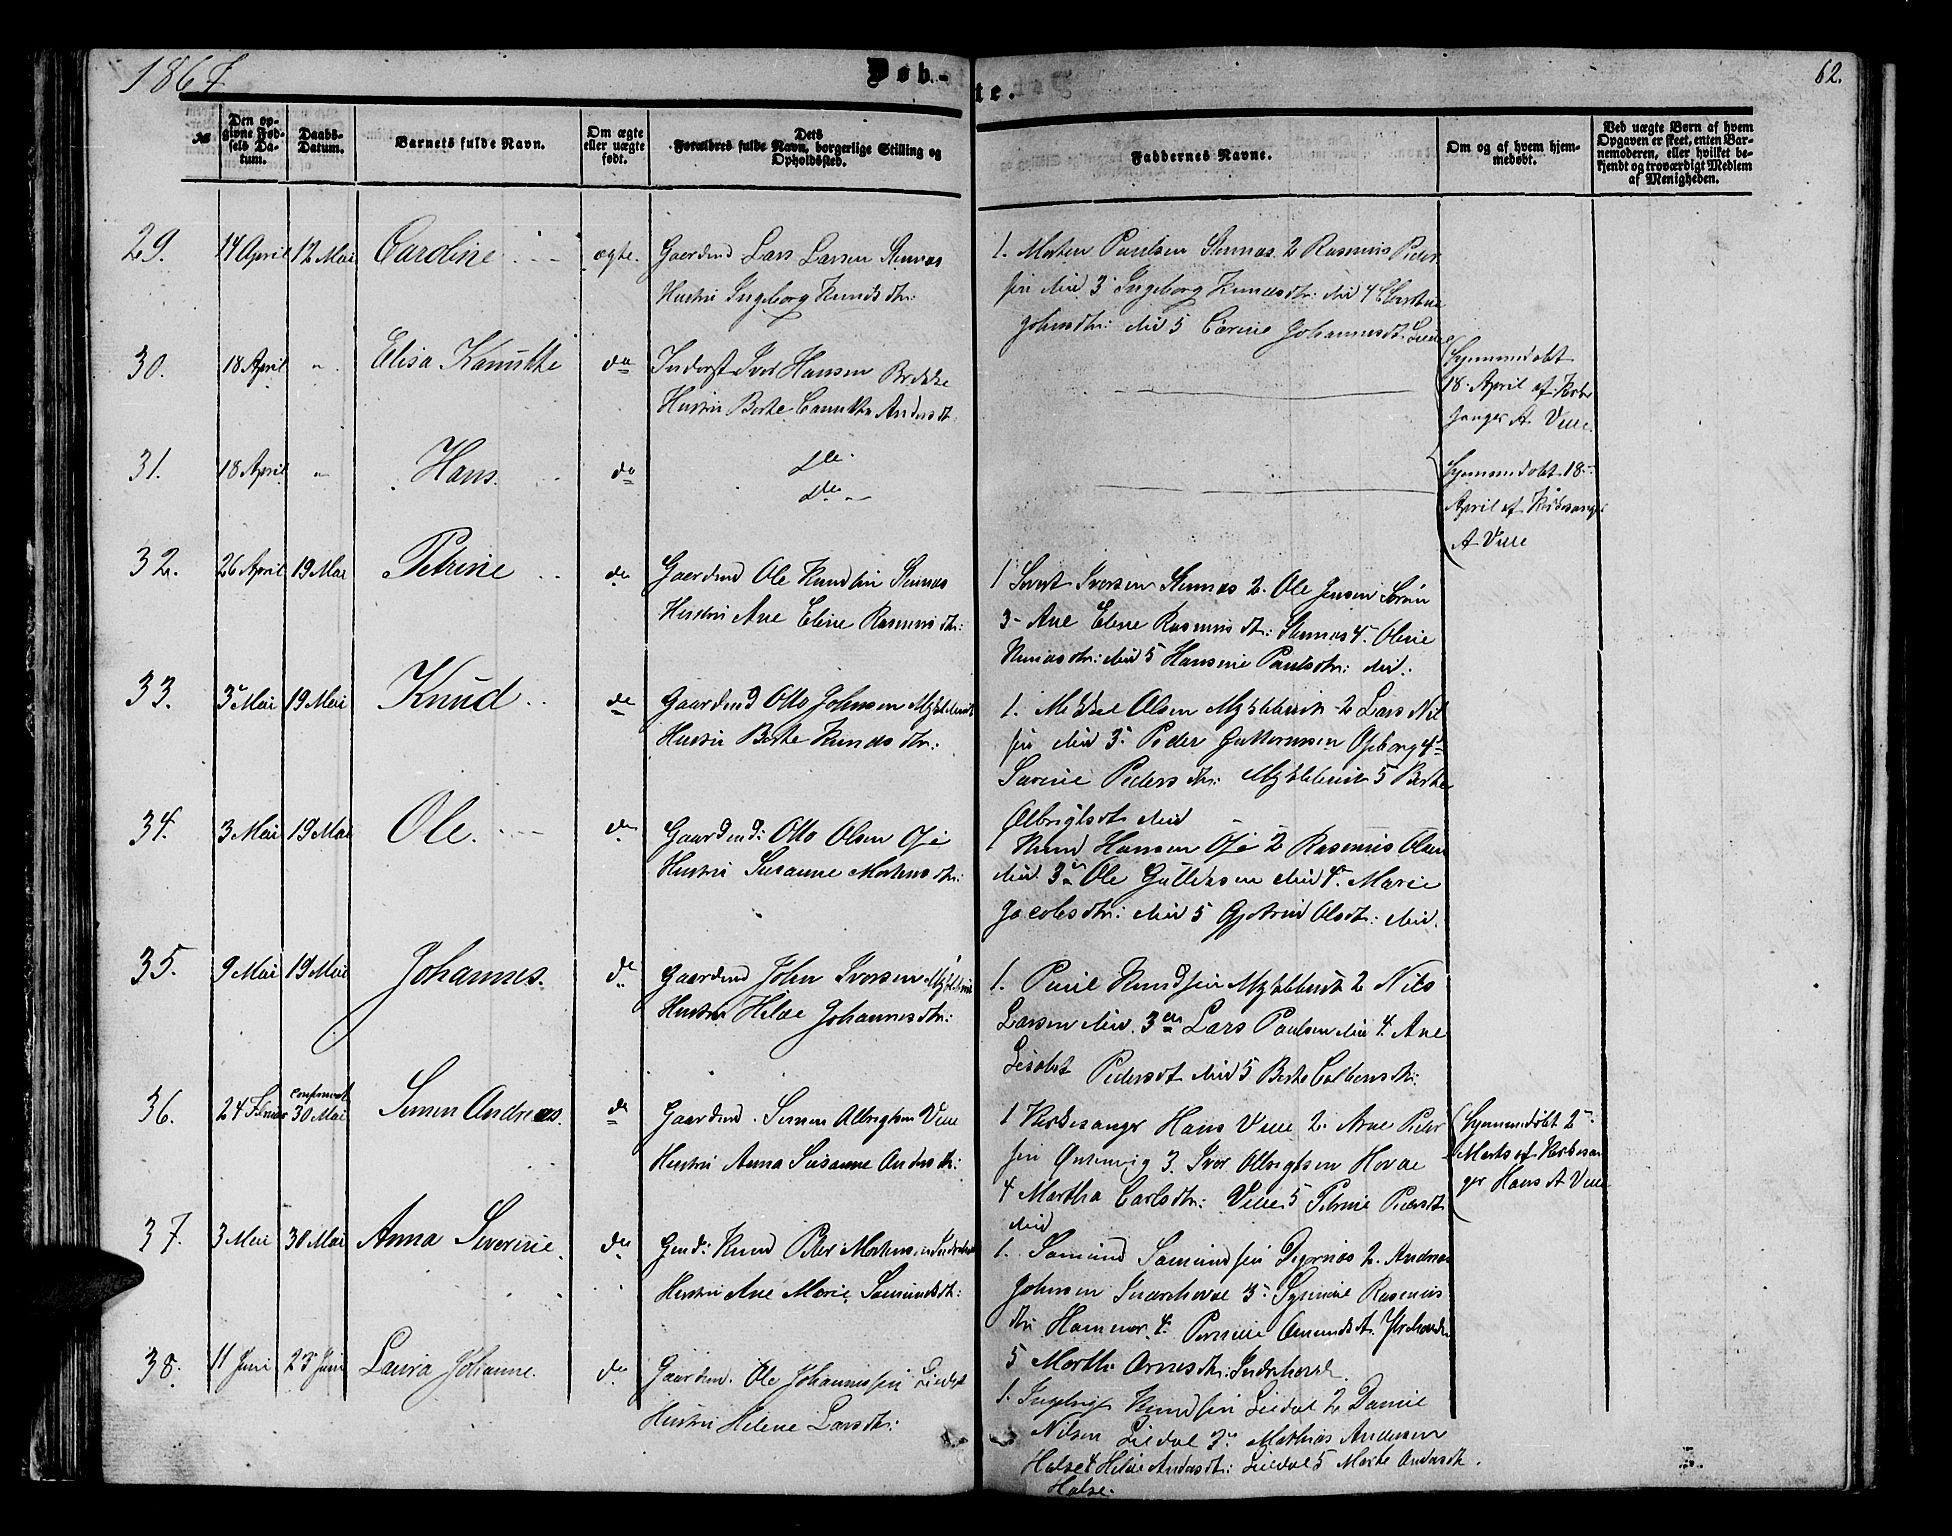 1867
Døb-
te.
62.
№
Den op-
givne Fød-
sels Da-
tum.
Daabs-
Datum.
Barnets fulde Navn.
Om ægte
eller uægte
født.
Dets
Forældres fulde Navn, borgerlige Stilling og
Opholdssted.
Faddernes Navne.
Om og af hvem hjem-
medøbt.
Ved uægte Børn af hvem
Opgaven er skeet, enten Bar-
nemoderen, eller hvilket be-
kjendt og troværdigt Medlem
af Menigheden.
29. 14 April 12 Mai Caroline ægte. Gaardmd Lars Larsen
Hustru Ingeborg Knudsdtr:
1. Morten Paulsen 2 Rasmus Peder
sen 3 Ingeborg Knudsdtr: 4
Johnsdtr: 5 Johannesdt
30. 18 April " Elisa Kanutthe do Inderst Ivor Hansen Brekke
Hustru Berte Andersdt.
Hjemmedøbt
18 April af Kirke
sanger A Velle
31. 18 April " Hans do
Hjemmedøbt 18
April af Kirkesanger
A Velle
32. 26 April 19 Mai Petrine do Gaardmd Ole Knudsen
Hustru Ane Eline Rasmusdtr:
1 Sivert Iversen 2. Ole Jensen
3 Ane Eline Rasmusdtr: 4. Oline
Knudsdtr: 5 Hansine Paulsdtr:
33. 3 Mai 19 Mai Knud do Gaardmd Otto Johnsen Myklebust
Hustru Berte Knudsdtr:
1. Mikkel Olsen Myklebust 2 Lars Nil
sen 3 Peder Guttormsen Opborg 4
Severine Pedersdtr: Myklebust 5 Berte
Albrigtsdt
34. 3 Mai 19 Mai Ole. do Gaardmd: Otto Olsen Øie
Hustru Susanne Mortensdtr:
1 Knud Hansen Øie 2 Rasmus Olsen
3 Ole Gulliksen 4. Marie
Jacobsdtr: 5 Olsdt:
35. 9 Mai 19 Mai Johannes. do Gaardmd John Iversen Myklebust
Hustru Hilde Johannesdtr:
1. Paul Knudsen Myklebust 2 Nils
Larsen 3 Lars Paulsen 4. Ane
Lisabet Pedersdt 5 Berte
36. 24 confirmeret 30 Mai Simen Andreas. do Gaardmd. Simen Albrigtsen Velle
Hustru Anna Susanne Andersdtr:
1 Kirkesanger Hans Velle 2. Arne Peder
sen 3. Ivor Albrigtsen Hovde
4 Martha Carlsdtr: Velle 5 Petrine Pedersdt
Hjemmedøbt 2
Marts af Kirkesan
ger Hans A Velle
37. 3 Mai 30 Mai Anna Severine. do Gmd: Knud Peter Mortensen Indrehovde
Hustru Ane Marie Samundsdt:
1. Samund Samundsen 2. Andreas
Johnsen Indrehovde 3 Rasmus
dtr: Hammer 4. Pernille Amundsdt Yrehovde
5 Marthe Arnesdtr: Indrehovde.
38. 11 Juni 23 Juni Laura Johanne. do Gaardmd. Ole Johannessen Liedal
Hustru Helene Larsdtr:
1. Ingebrigt Knudsen Liedal 2 Daniel
Nilsen Liedal 3. Mathias Andersen
Halse 4 Hilde Andersdtr: Liedal 5 Marte Andersdt.
Halse.